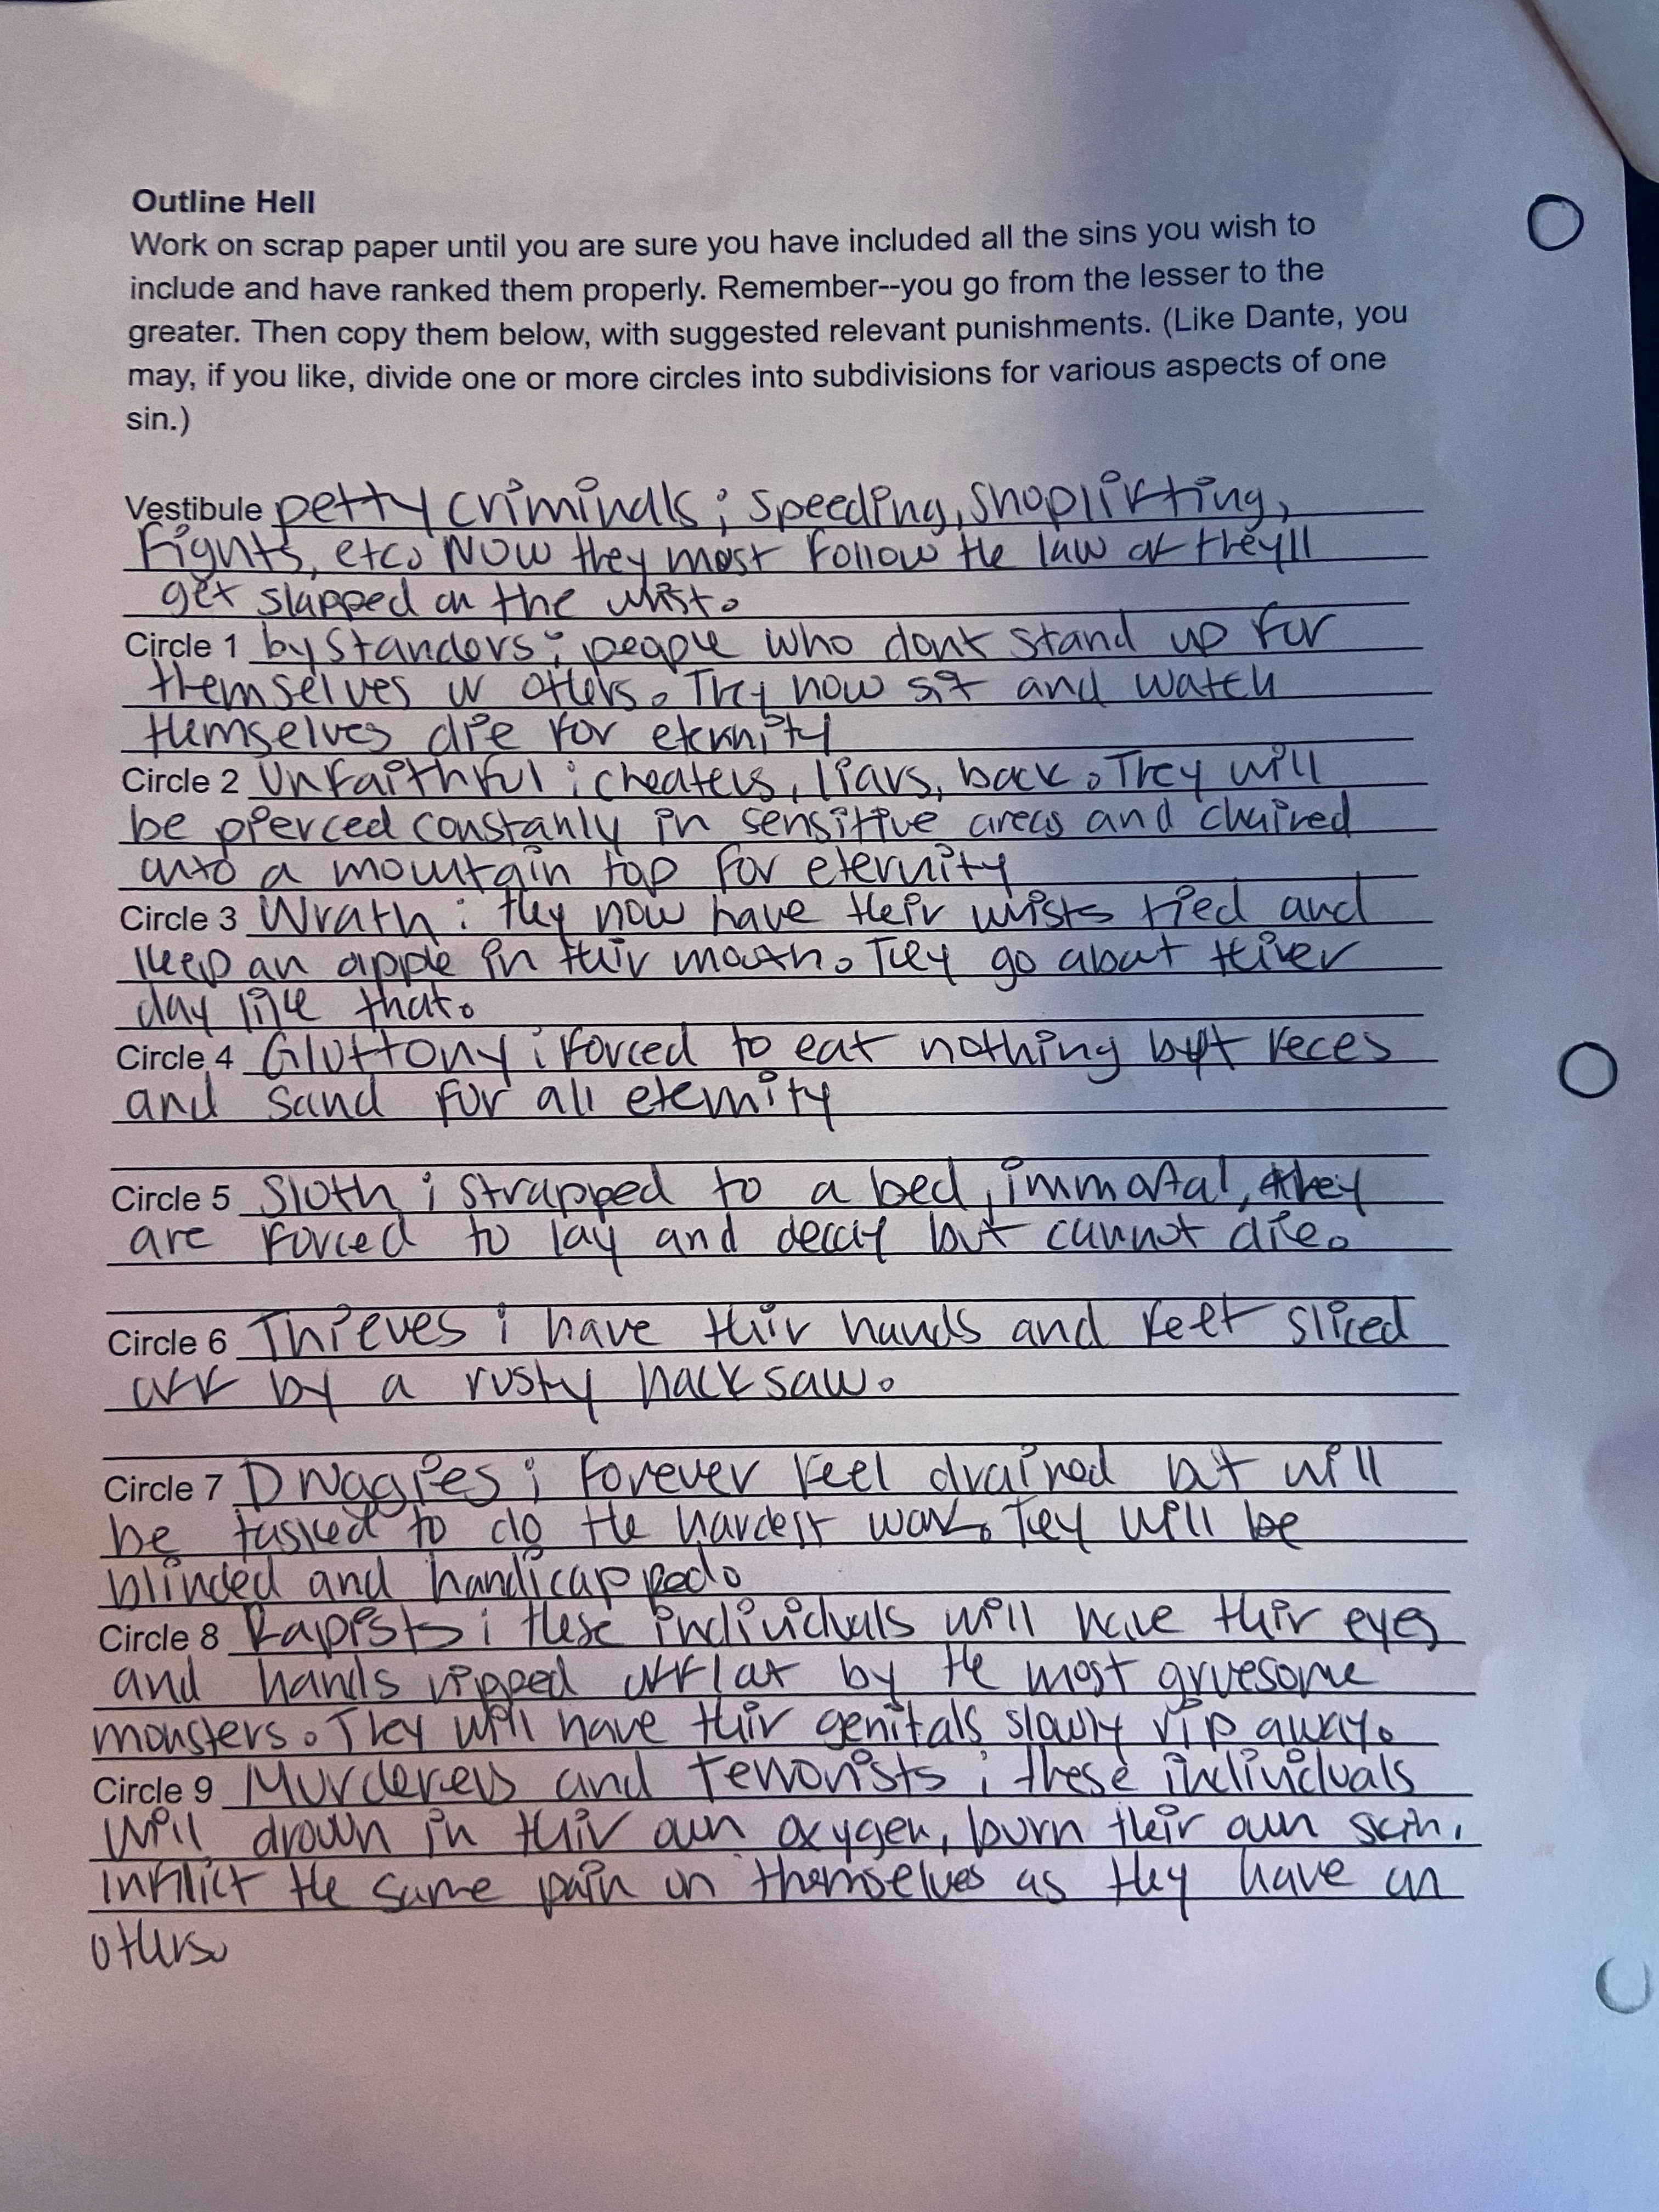 Outline Hell
Work on scrap paper until you are sure you have included all the sins you wish to
include and have ranked them properly. Remember--you go from the lesser to the
greater. Then copy them below, with suggested relevant punishments. (Like Dante, you
may, if you like, divide one or more circles into subdivisions for various aspects of one
sin.)
Vestibule petty criminals; speeding, shoplifting,
Fights, etc. Now they most follow the law or they'll
get slapped on the wrist.
Circle 1 bystanders; people who dont stand up for
themselves or others. They now sit and watch
themselves die for eternity
Circle 2 Unfaithful; cheaters, liars, back. They will
be pierced constanly in sensitive areas and chained
onto a mountain top for eternity
Circle 3 Wrath: they now have their wrists tied and
keep an apple in their mouth. They go about their
day like that.
Circle 4 Gluttony; forced to eat nothing but feces
and sand for all eternity
Circle 5 Sloth; strapped to a bed, immortal, they
are forced to lay and decay but cannot die.
Circle 6 Thieves; have thier hands and feet sliced
off by a rusty hacksaw.
Circle 7 Druggies; forever feel drained but will
be tasked to do the hardest work. They will be
blinded and handicapped.
Circle 8 Rapists; these individuals will have thier eyes
and hands ripped off/out by the most gruesome
monsters. They will have thier genitals slowly rip away.
Circle 9 Murderers and terrorists; these individuals
will drown in thier own oxygen, burn their own skin,
inflict the same pain on themselves as they have on
others.